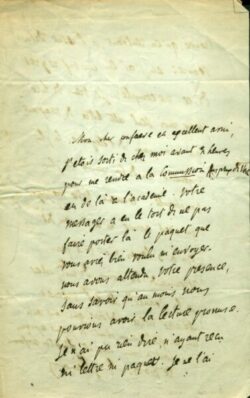 Mon cher confrere et excellent ami,
j'etais sorti de chez moi avant 
pour me rendre à la Commission
et de là à l'academie. Votre
messager a eu le tort de ne pas
faire porter là le paquet que
vous aviez bien voulu m'envoyer.
nous avons attendu votre presence,
sans savoir qu'au moins nous
pouvions avoir la lecture promise.
Je n'ai pu rien dire, n'ayant reçu
ni lettre ni paquet. Je ne l'ai